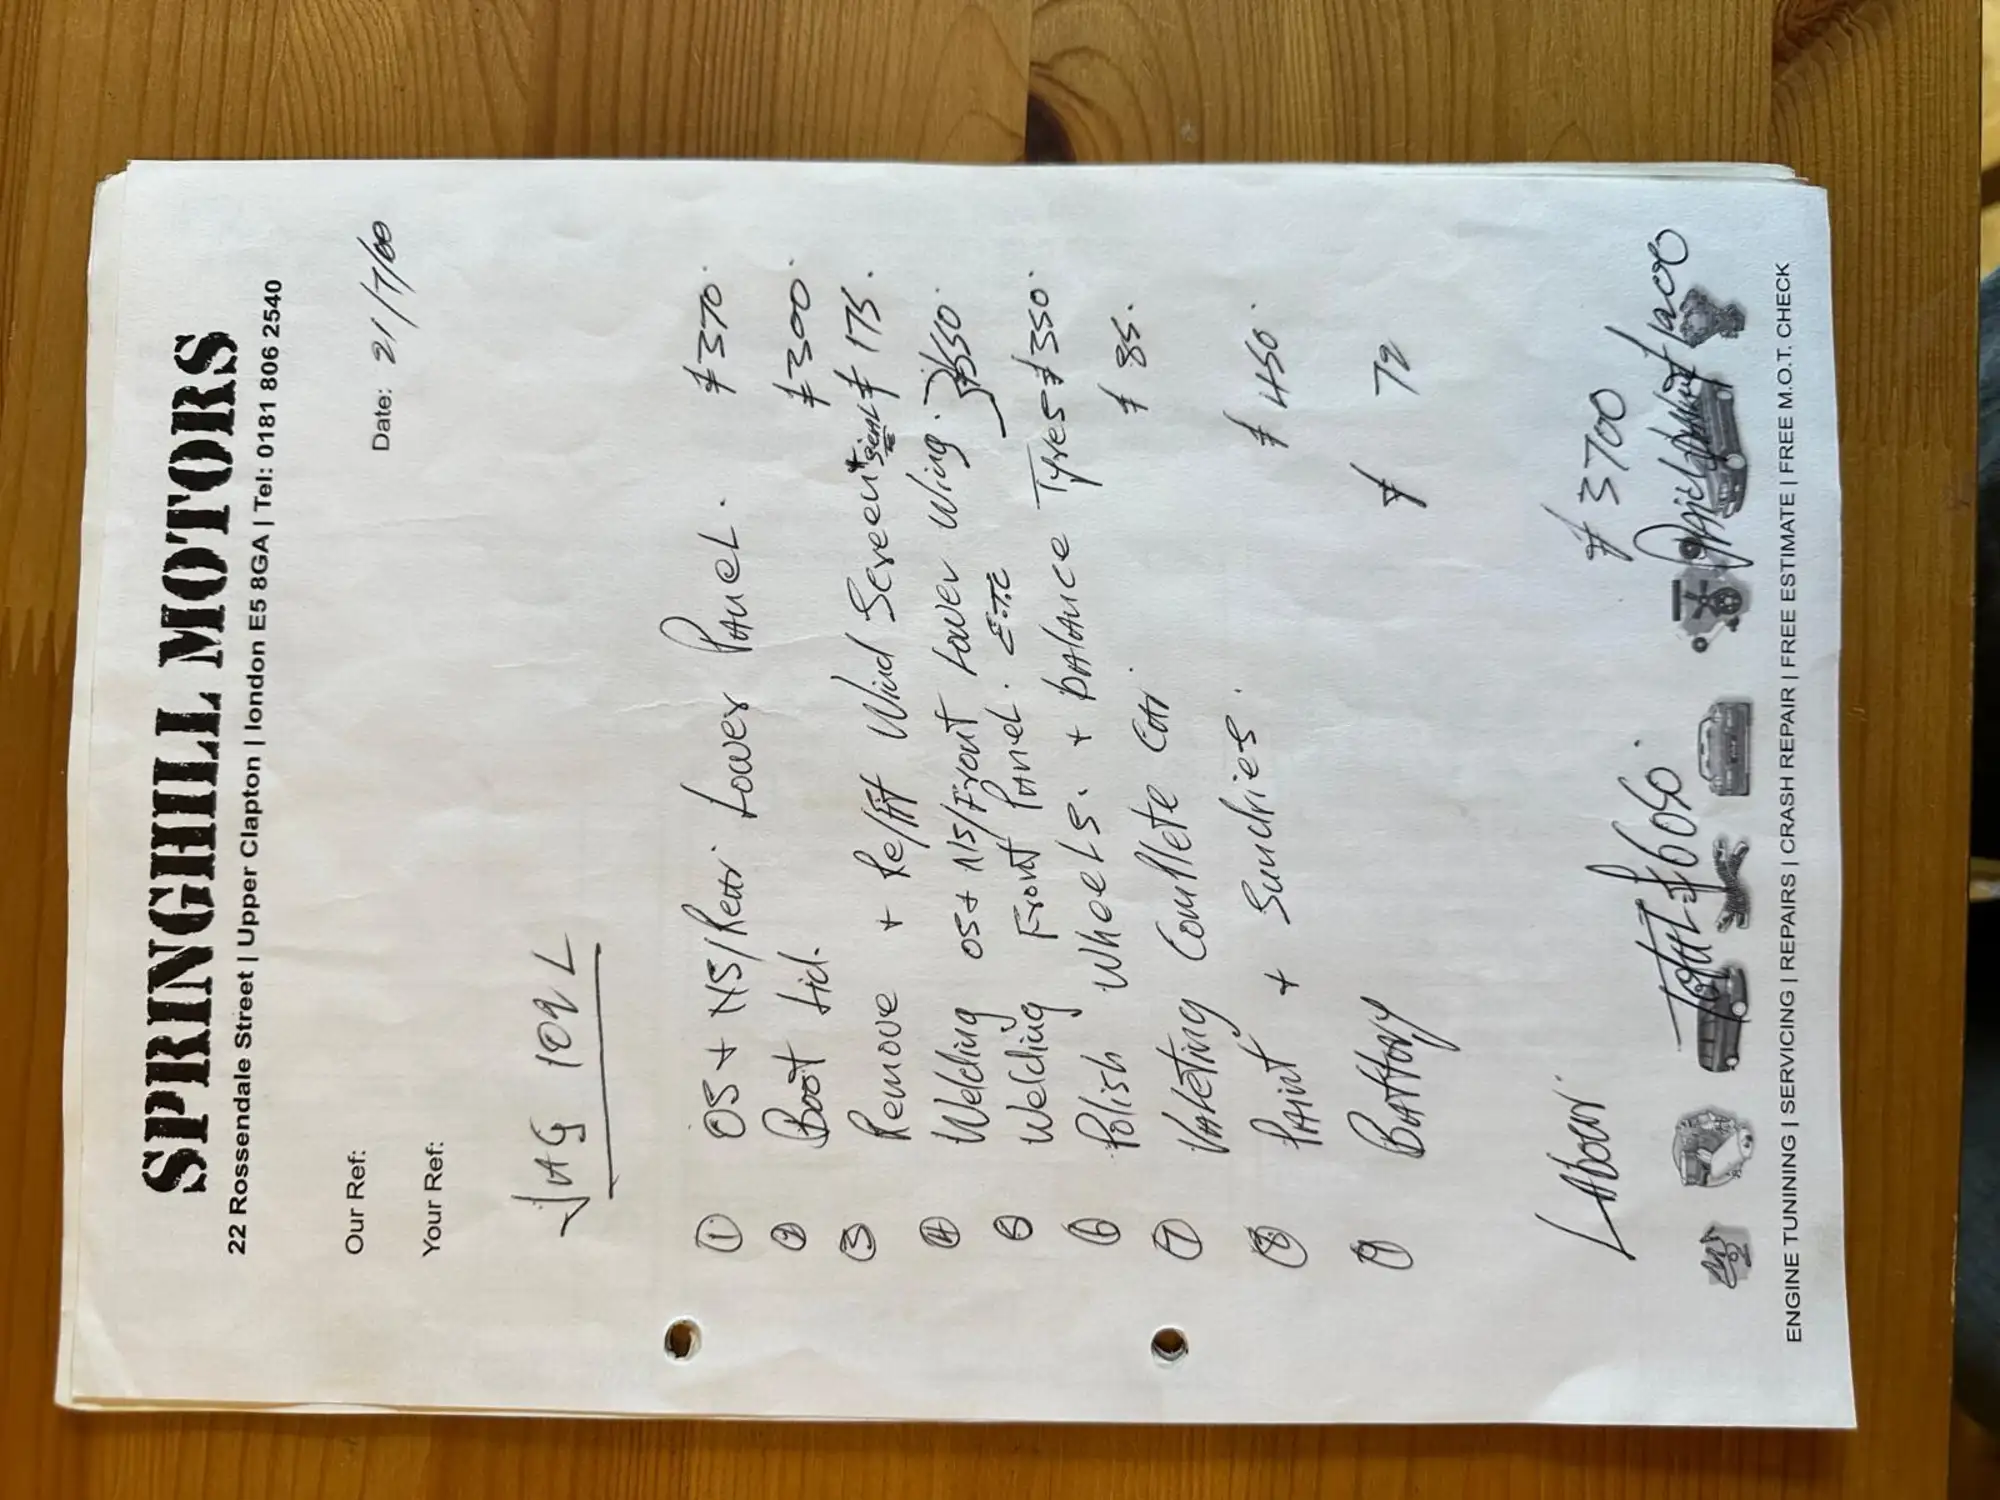 SPRINGHILL MOTORS
22 Rossendale Street | Upper Clapton | london E5 8GA | Tel: 0181 806 2540
Our Ref: Date: 21/7/00
Your Ref:
JAG 109 L
① OS + NS/Rear Lower Panel. £370.
② Boot Lid. £300.
③ Remove + Refit Wind Screen + SEAL £175.
④ Welding OS + N/S/Front Lower Wing.
⑤ Welding Front Panel. E.T.C £550.
⑥ Polish Wheels. + balance Tyres £350.
⑦ Valeting Comllete Car. £85.
⑧ Paint + Sundries. £450.
⑨ Battery £72
Labour £3700
Total £6050.
ENGINE TUNINING | SERVICING | REPAIRS | CRASH REPAIR | FREE ESTIMATE | FREE M.O.T. CHECK